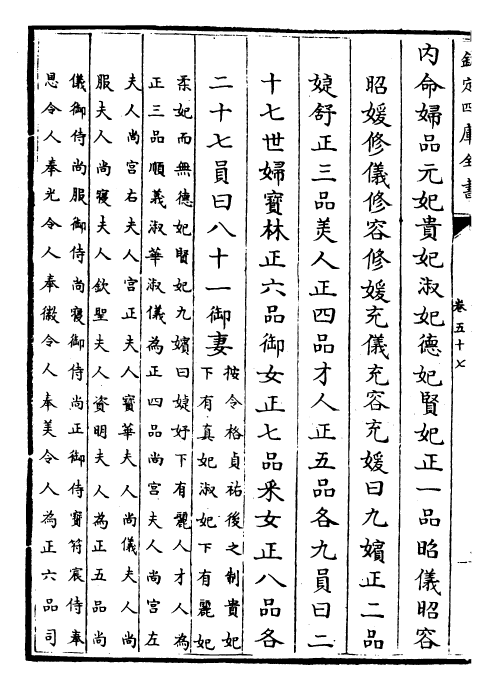 欽定四庫全書
卷五十七
內命婦品元妃貴妃淑妃德妃賢妃正一品昭儀昭容
昭媛修儀修容修媛充儀充容充媛曰九嬪正二品
婕舒正三品美人正四品才人正五品各九員曰二
十七世婦寳林正六品御女正七品采女正八品各
二十七員曰八十一御妻
按令格貞祐後之制貴妃
下有真妃淑妃下有麗妃
柔妃而無德妃賢妃九嬪曰婕妤下有麗人才人為
正三品順義淑華淑儀為正四品尚宮夫人尚宮左
夫人尚宮右夫人宮正夫人寳華夫人尚儀夫人尚
服夫人尚寢夫人欽聖夫人資明夫人為正五品尚
儀御侍尚服御侍尚寢御侍尚正御侍寳符宸侍奉
恩令人奉光令人奉徽令人奉美令人為正六品司